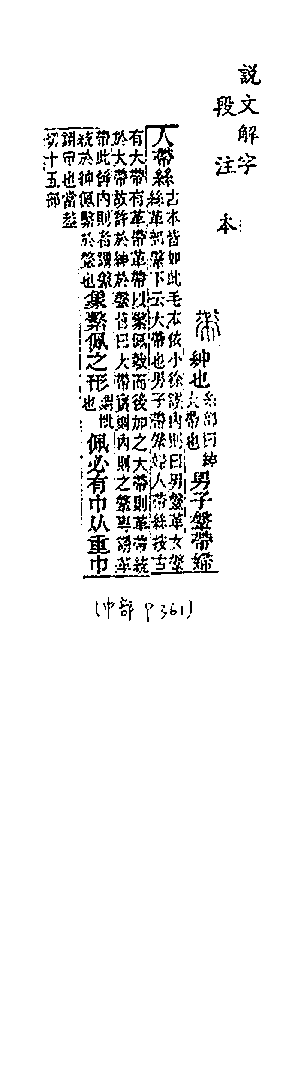 説文解字
段注本
紳也糸部曰紳大帶也男子鞶帶婦
人帶絲古本皆如此毛本依小徐內則曰男鞶革女鞶
絲革部鞶下云大帶也男子帶鞶婦人帶絲按古
有大帶有革帶革帶以繫佩韍而後加之大帶則革帶統
於大帶故許於紳於鞶皆曰大帶實則內則之鞶專謂革
帶此稱內則者謂鞶統於紳佩繫於鞶也象繫佩之形謂也佩必有巾从重巾
謂也當蓋
切十五部
(巾部 P361)